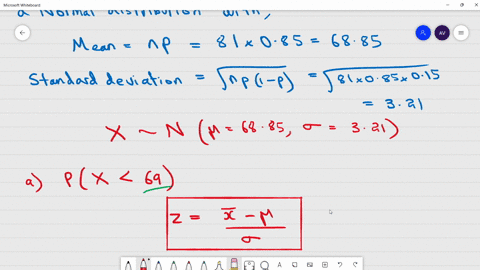 Microsoft Whiteboard
a Normal distribution with,
Mean = np = 81 x 0.85 = 68.85
Standard deviation = √np(1-p) = √81 x 0.85 x 0.15
= 3.21
X ~ N (μ = 68.85, σ = 3.21)
a) P(X < 69)
z = x̄ - μ / σ
AV